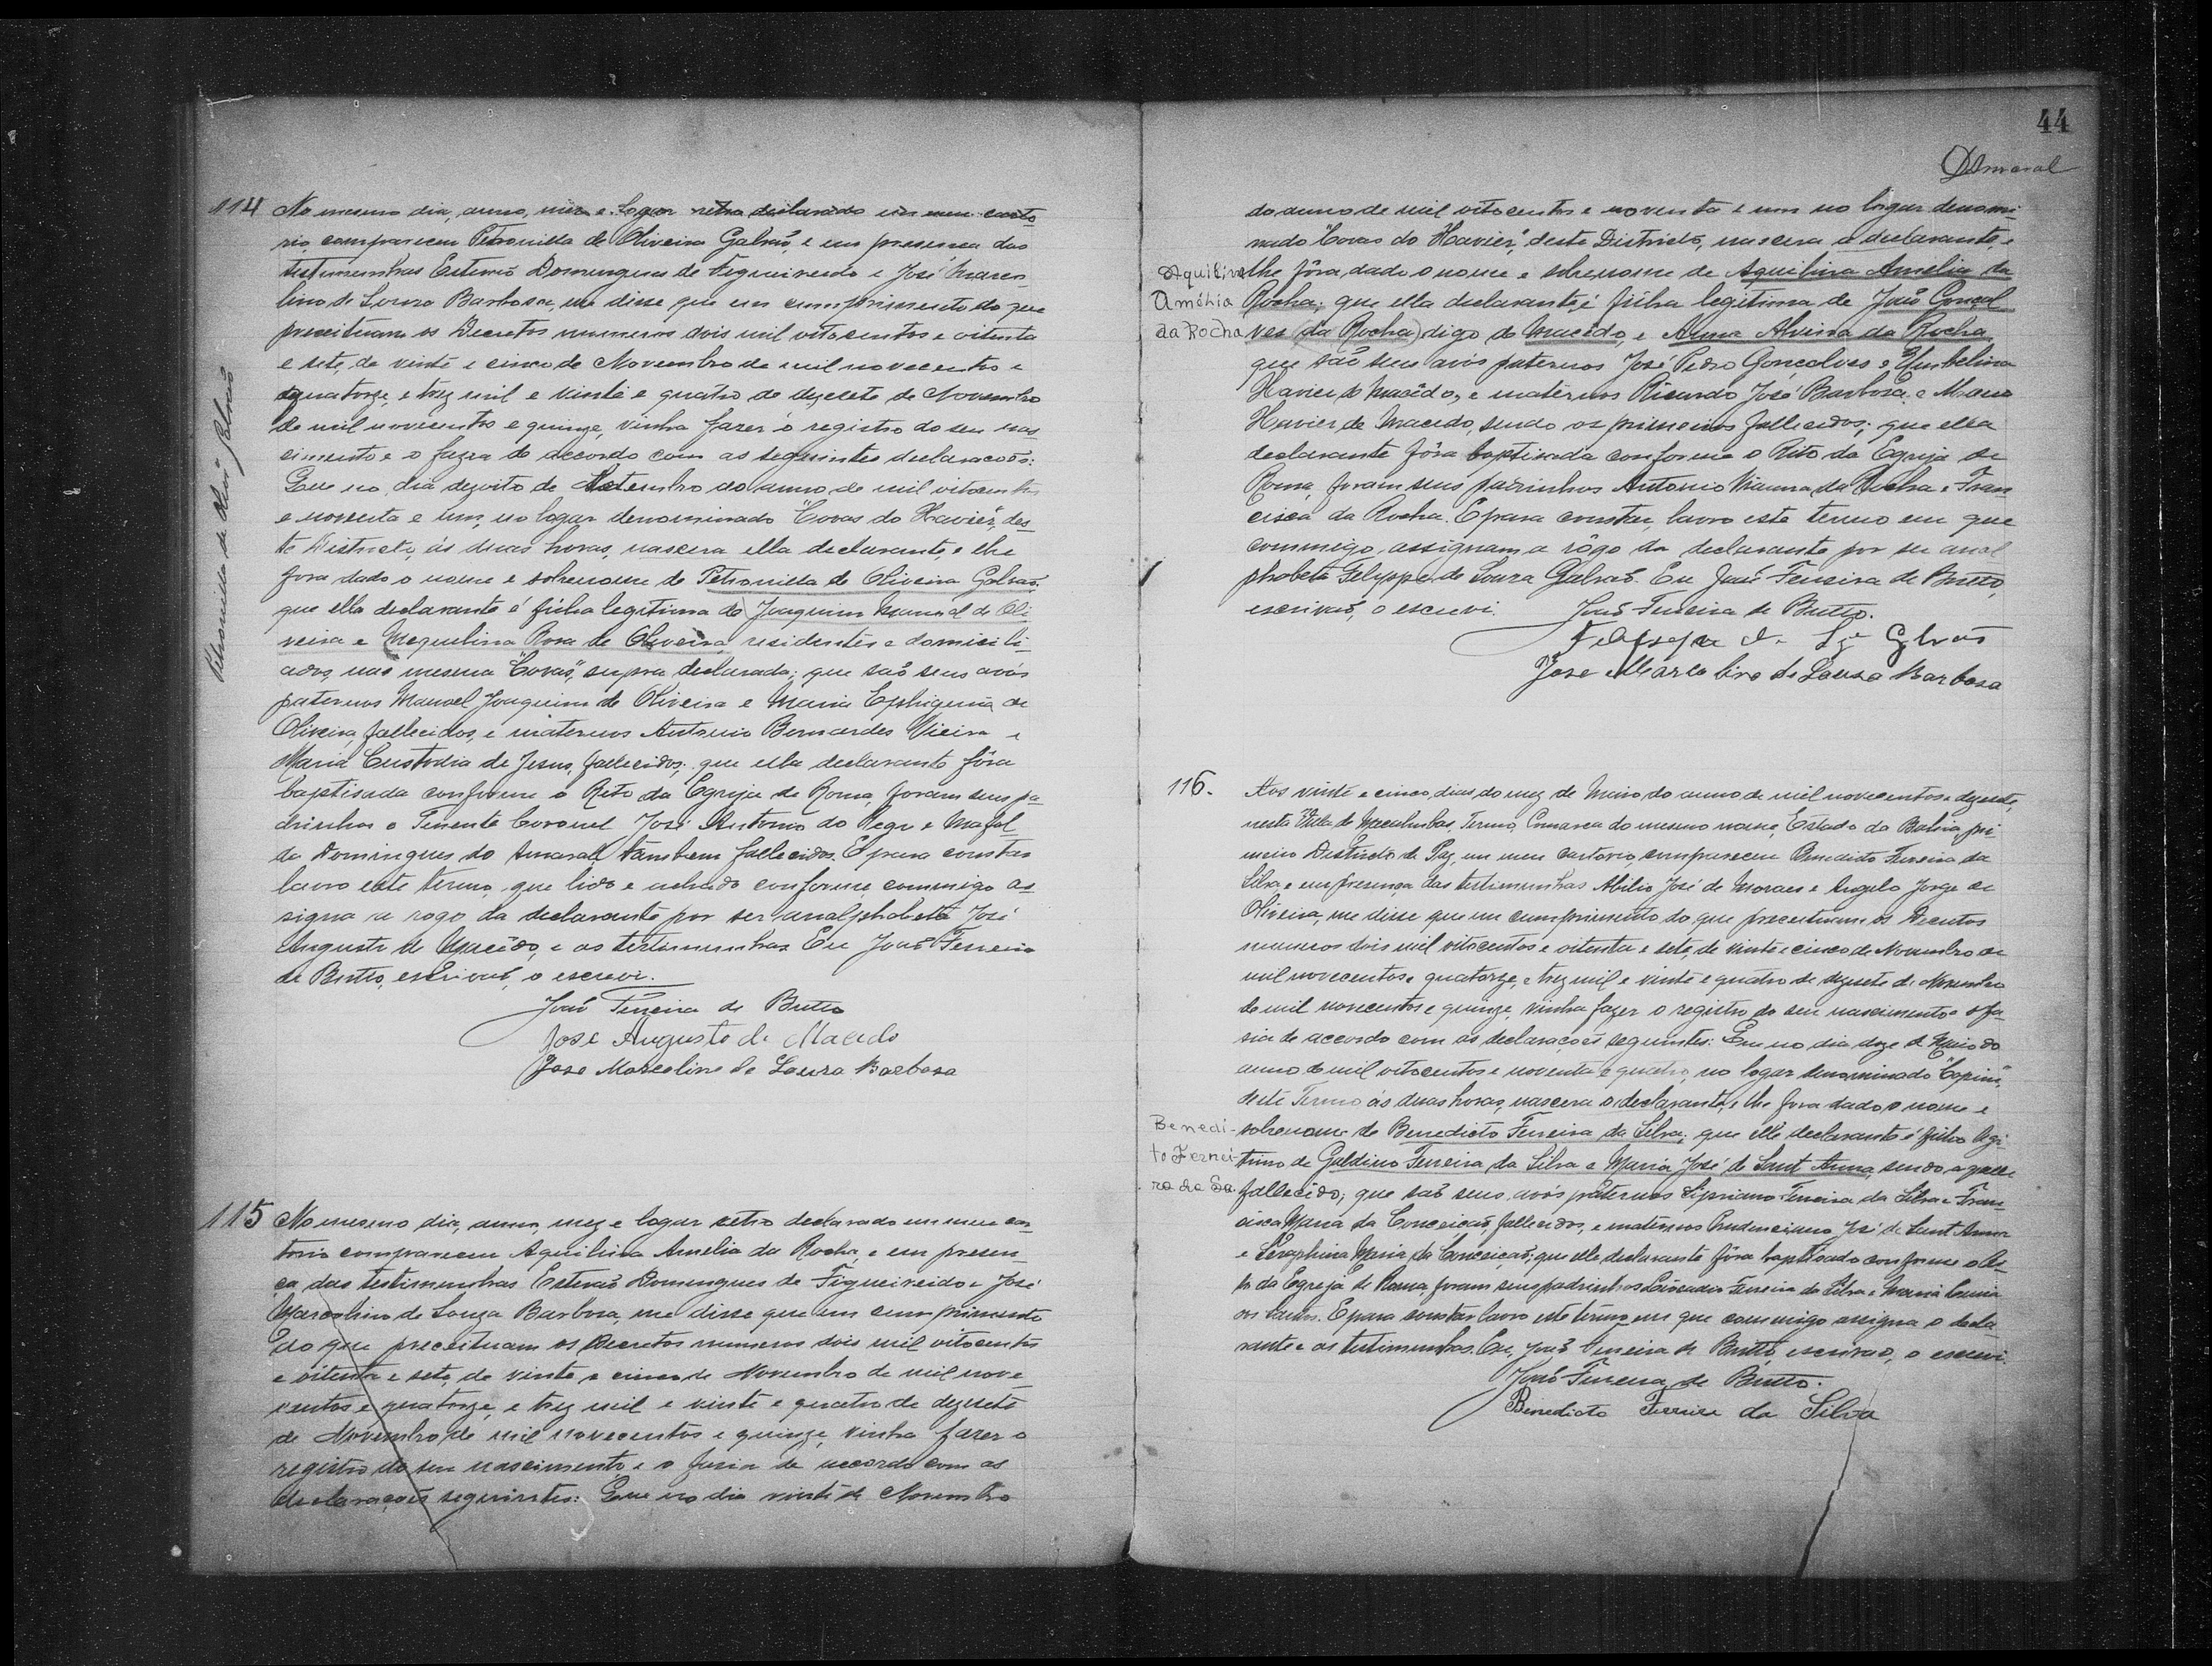 114 No mesmo dia, anno, mez e logar retro declarado em meu carto
rio compareceu Petronilla de Oliveira Galvaõ, e em presença das
testimunhas Estevaõ Domingues de Figueiredo e José Marcol
lino de Souza Barbosa, me disse que em cumprimento do que
preceituam os Decretos numeros dois mil oitocentos e oitenta
e sete, de vinte e cinco de Novembro de mil novecentos e
quatorze, e trez mil e vinte e quatro de dezesete de Novembro
de mil novecentos e quinze, vinha fazer o registro do seu nas
cimento e o fazia de accordo com as seguintes declaracoēs:
Que no dia dezoito de Setembro do anno de mil oitocentos
e noventa e um, no logar denominado "Covas do Xavier", des
te Districto, ás duas horas, nascera ella declarante, e lhe
fora dado o nome e sobrenome de Petronilla de Oliveira Galvaõ,
que ella declarante é filha legitima de Joaquim Manoel de Oli
veira e Mequelina Rosa de Oliveira, residentes e domicili
ados nas mesma "Covas", supra declarada; que saõ seus avós
paternos Manoel Joaquim de Oliveira e Maria Ephigenia de
Oliveira, fallecidos, e maternos Antonio Bernardes Vieira e
Maria Custodia de Jesus, fallecidos; que ella declarante fôra
baptisada conforme o Rito da Egreja de Roma, foram seus pa
drinhos o Tenente Coronel José Antonio do Rego e Mafal
da Domingues do Amaral, tambem fallecidos. E para constar
lavro este termo, que lido e achado conforme commigo as
signa a rogo da declarante por ser analphabeta José
Augusto de Macêdo, e as testimunhas. Eu Joaõ Ferreira
de Britto, escrivaõ, o escrevi.
Joaõ Ferreira de Britto
José Augusto de Macedo
Jose Marcolino de Souza Barbosa
Petronilla de Oliv.ª Galvaõ
115 No mesmo dia, anno, mez e logar retro declarado em meu car
torio compareceu Aquilina Amelia da Rocha, e em presen
ça das testimunhas Estevaõ Domingues de Figueiredo e José
Marcolino de Souza Barbosa, me disse que em cumprimento
do que preceituam os Decretos numeros dois mil oitocentos
e oitenta e sete, de vinte e cinco de Novembro de mil nove
centos e quatorze, e trez mil e vinte e quatro de dezesete
de Novembro de mil novecentos e quinze, vinha fazer o
registro do seu nascimento, e o fazia de accordo com as
declarações seguintes: Que no dia vinte de Novembro
44
DAmaral
do anno de mil oitocentos e noventa e um no logar denomi
nado "Covas do Xavier", deste Districto, nascera a declarante, e
lhe fôra dado o nome e sobrenome de Aquilina Amelia da
Rocha; que ella declarante é filha legitima de Joaõ Gonçal
ves (da Rocha) digo de Macêdo, e Anna Alvina da Rocha,
que saõ seus avós paternos José Pedro Gonçalves e Umbelina
Xavier de Macêdo, e maternos Ricardo José Barbosa e Maria
Xavier de Macedo, sendo os primeiros fallecidos; que ella
declarante fôra baptisada conforme o Rito da Egreja de
Roma, foram seus padrinhos Antonio da Rocha e Fran
cisca da Rocha. E para constar, lavro este termo em que
commigo assignam a rôgo da declarante por ser anal
phabeta Felyppe de Souza Galvaõ. Eu Joaõ Ferreira de Britto,
escrivaõ, o escrevi. Joaõ Ferreira de Britto.
Felippe de Sz.ª Galvão
Jose Marcolino de Souza Barbosa
Aquilina
Amélia
da Rocha
116. Aos vinte e cinco dias do mez de Maio do anno de mil novecentos e dezesete,
nesta Villa de Macahubas, Termo, Comarca do mesmo nome, Estado da Bahia, pri
meiro Districto de Paz, em meu cartorio, compareceu Benedicto Ferreira da
Silva, e em presença das testimunhas Abilio José de Moraes e Angelo Jorge de
Oliveira, me disse que em cumprimento do que preceituam os Decretos
numeros dois mil oitocentos e oitenta e sete, de vinte e cinco de Novembro de
mil novecentos e quatorze, e trez mil e vinte e quatro de dezesete de Novembro
de mil novecentos e quinze, vinha fazer o registro do seu nascimento e o fa
sia de accordo com as declaraçoēs seguintes: Que no dia doze de Maio do
anno de mil oitocentos e noventa e quatro, no logar denominado "Capim",
deste Termo ás duas horas, nascera o declarante, e lhe fora dado o nome e
sobrenome de Benedicto Ferreira da Silva; que elle declarante é filho legi
timo de Galdino Ferreira da Silva e Maria José de Sant'Anna, sendo aquelle
fallecido; que saõ seus avós paternos Sipriano Ferreira da Silva e Fran
cisca Maria da Conceiçaõ, fallecidos, e maternos Prudenciano José de Sant'Anna
e Seraphina Maria da Conceiçaõ; que elle declarante fôra baptisado conforme o Ri
to da Egreja de Roma, foram seus padrinhos Ferreira da Silva e Maria
E para constar lavro este termo em que commigo assigna o decla
rante e as testimunhas. Eu, Joaõ Ferreira de Britto, escrivaõ, o escrevi.
Joaõ Ferreira de Britto.
Benedicto Ferreira da Silva
Benedi-
to Ferrei-
ra da Sa.